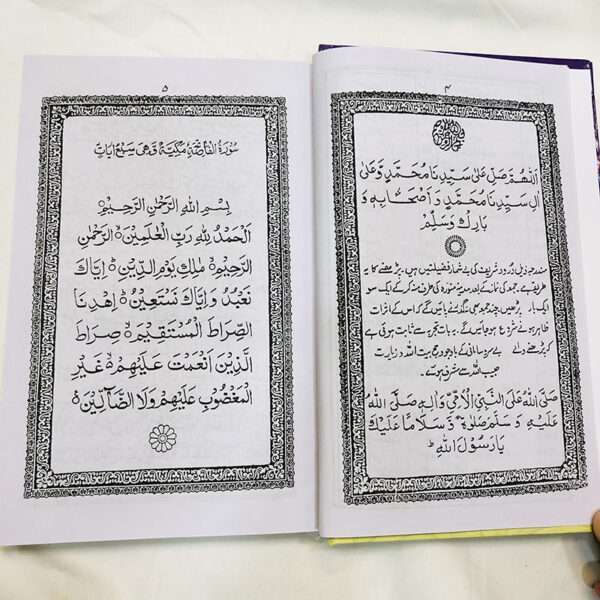 ۴
اَللّٰهُمَّ صَلِّ عَلٰى سَيِّدِنَا مُحَمَّدٍ وَّعَلٰى
اٰلِ سَيِّدِنَا مُحَمَّدٍ وَّ اَصْحَابِهٖ وَ
بَارِكْ وَسَلِّمْ
مندرجہ ذیل درود شریف کی بے شمار فضیلتیں ہیں۔ پڑھنے کا یہ
طریقہ ہے جمعہ کی نماز کے بعد مدینہ منورہ کی طرف منہ کر کے ایک سو
ایک بار پڑھیں، چند جمعہ بھی نہ گزرنے پائیں گے کہ اس کے اثرات
ظاہر ہونے شروع ہو جائیں گے۔ یہ بات تجربہ سے ثابت ہوئی ہے
کہ پڑھنے والے بے سر و سامانی کے باوجود حج بیت اللہ و زیارت
حبیب اللہ سے مشرف ہوئے۔
صَلَّى اللهُ عَلَى النَّبِيِّ الْاُمِّيِّ وَاٰلِهٖ صَلَّى اللهُ
عَلَيْهِ وَ سَلَّمَ صَلٰوةً وَّ سَلَامًا عَلَيْكَ
يَا رَسُوْلَ اللهِ ط
۵
سُوْرَةُ الْفَاتِحَةِ مَكِّيَّةٌ وَّهِيَ سَبْعُ اٰيَاتٍ
بِسْمِ اللهِ الرَّحْمٰنِ الرَّحِيْمِ
اَلْحَمْدُ لِلّٰهِ رَبِّ الْعٰلَمِيْنَ ۙ الرَّحْمٰنِ
الرَّحِيْمِ ۙ مٰلِكِ يَوْمِ الدِّيْنِ ۗ اِيَّاكَ
نَعْبُدُ وَاِيَّاكَ نَسْتَعِيْنُ ۗ اِهْدِنَا
الصِّرَاطَ الْمُسْتَقِيْمَ ۙ صِرَاطَ
الَّذِيْنَ اَنْعَمْتَ عَلَيْهِمْ ۙ غَيْرِ
الْمَغْضُوْبِ عَلَيْهِمْ وَلَا الضَّآلِّيْنَ